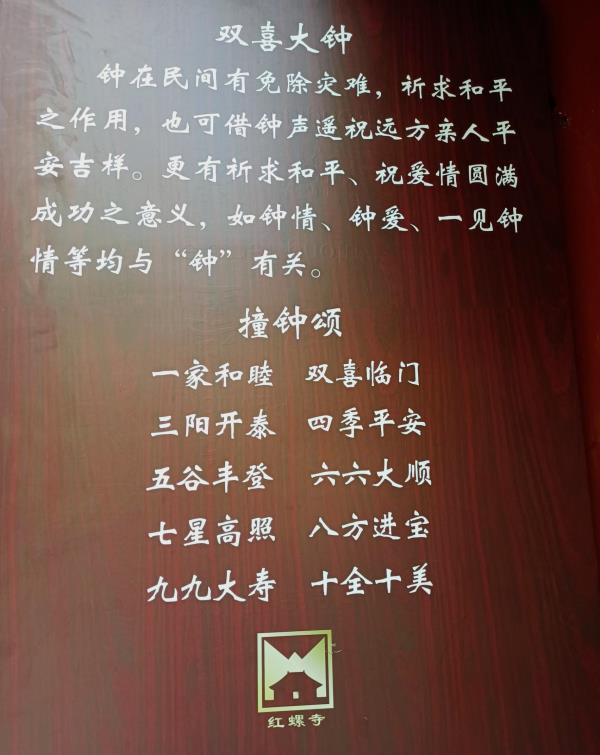 双喜大钟
钟在民间有免除灾难，祈求和平
之作用，也可借钟声遥祝远方亲人平
安吉样。更有祈求和平、祝爱情圆满
成功之意义，如钟情、钟爱、一见钟
情等均与“钟”有关。
撞钟颂
一家和睦 双喜临门
三阳开泰 四季平安
五谷丰登 六六大顺
七星高照 八方进宝
九九大寿 十全十美
红螺寺